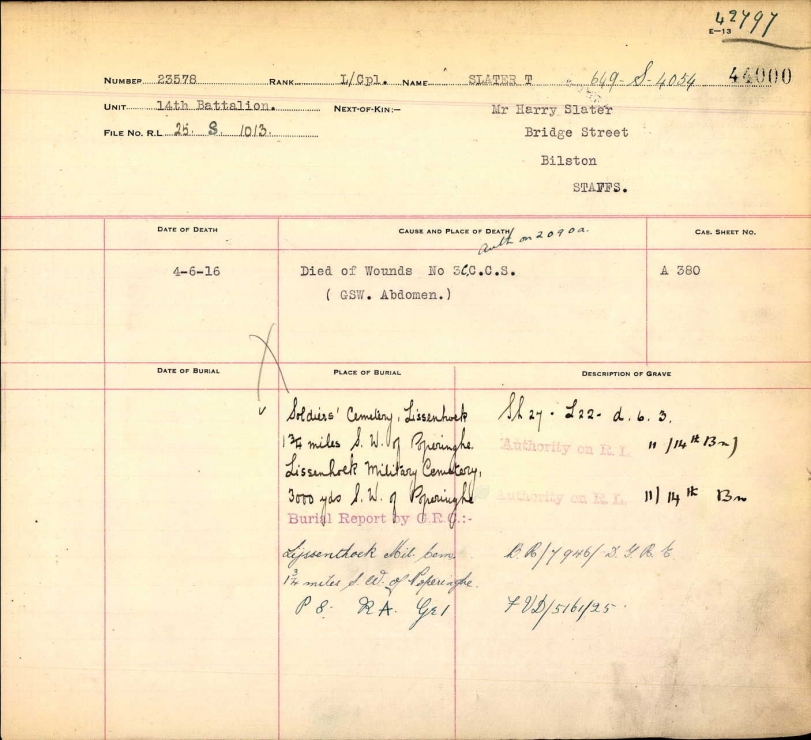 42797
E—13
NUMBER 23578 RANK L/Cpl. NAME SLATER T 649-S-4054 44000
UNIT 14th Battalion. NEXT-OF-KIN:— Mr Harry Slater
FILE NO. R.L 25. S. 1013. Bridge Street
Bilston
STAFFS.
DATE OF DEATH CAUSE AND PLACE OF DEATH CAS. SHEET NO.
Auth on 2090a.
4-6-16 Died of Wounds No 3 C.C.S. A 380
( GSW. Abdomen.)
DATE OF BURIAL PLACE OF BURIAL DESCRIPTION OF GRAVE
Soldiers' Cemetery, Lissenhoek Sh 27 - L22 - d. 6. 3.
1¾ miles S. W. of Poperinghe. Authority on R. L. 11/14th Bn)
Lissenhoek Military Cemetery,
3000 yds S. W. of Poperinghe Authority on R. L. 11/14th Bn
Burial Report by G.R.C.:-
Lijssenthoek Mil. Cem. B.R/7946/D.G.R.E.
1¾ miles S. W. of Poperinghe.
P 8. R A. Gr 1 FVD/5161/25.